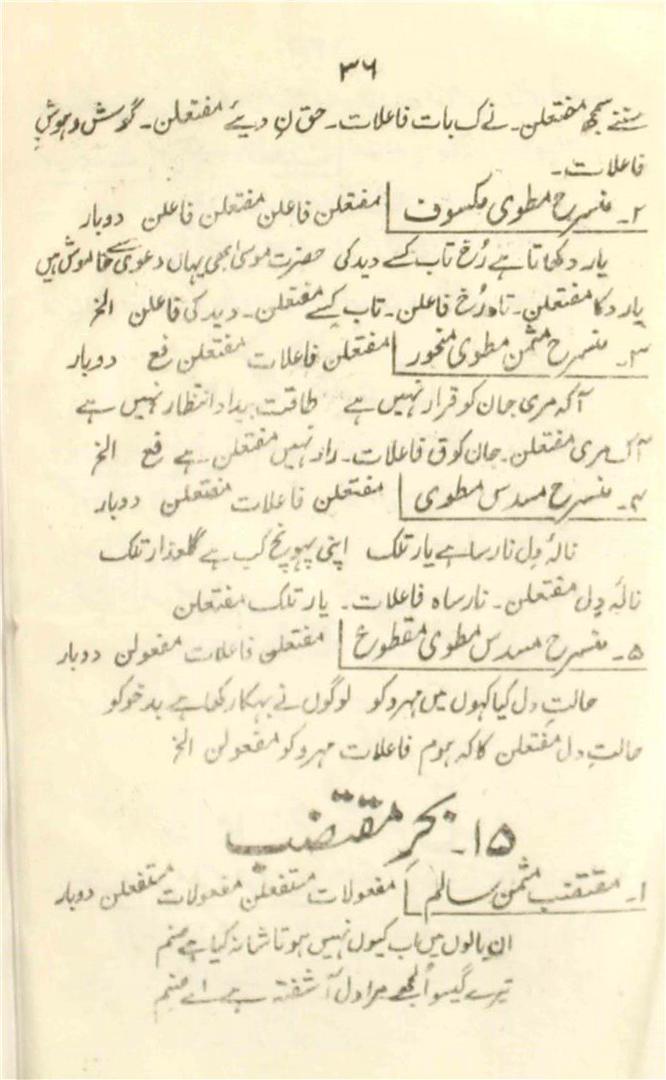 ۳۶
سننے سمجھ مفتعلن۔ نے ک بات فاعلات۔ حق نِ دیئے مفتعلن۔ گوش و ہوش
فاعلات۔
۲۔ منسرح مطوی مکسوف مفتعلن فاعلن مفتعلن فاعلن دوبار
یار دکھاتا ہے رُخ تاب کسے دید کی حضرت موسیٰ ابھی یہاں دعوی سے خاموش ہیں
یار دکا مفتعلن۔ تاہ رُخ فاعلن۔ تاب کسے مفتعلن۔ دید کی فاعلن الخ
۳۔ منسرح مثمن مطوی منحور مفتعلن فاعلات مفتعلن فع دوبار
آ کہ مری جان کو قرار نہیں ہے طاقت بیداد انتظار نہیں ہے
آک مری مفتعلن۔ جان کو ق فاعلات۔ رار نہیں مفتعلن۔ ہے فع الخ
۴۔ منسرح مسدس مطوی مفتعلن فاعلات مفتعلن دوبار
نالۂ دل نارسا ہے یار تلک اپنی پہونچ کب ہے گلعذار تلک
نالۂ دِل مفتعلن۔ نارساہ فاعلات۔ یار تلک مفتعلن
۵۔ منسرح مسدس مطوی مقطوع مفتعلن فاعلات مفعولن دوبار
حالتِ دل کیا کہوں میں مہرو کو لوگوں نے بہکا رکھا ہے بدخو کو
حالتِ دل مفتعلن کاکہ ہوم فاعلات مہرو کو مفعولن الخ
۱۵۔ بحرِ مقتضب
۱۔ مقتضب مثمن سالم مفعولات مستفعلن مفعولات مستفعلن دوبار
ان بالوں میں اب کیوں نہیں ہوتا شانہ کیا ہے صنم
تیرے گیسو اُلجھے میرا دل آشفتہ ہے اے صنم